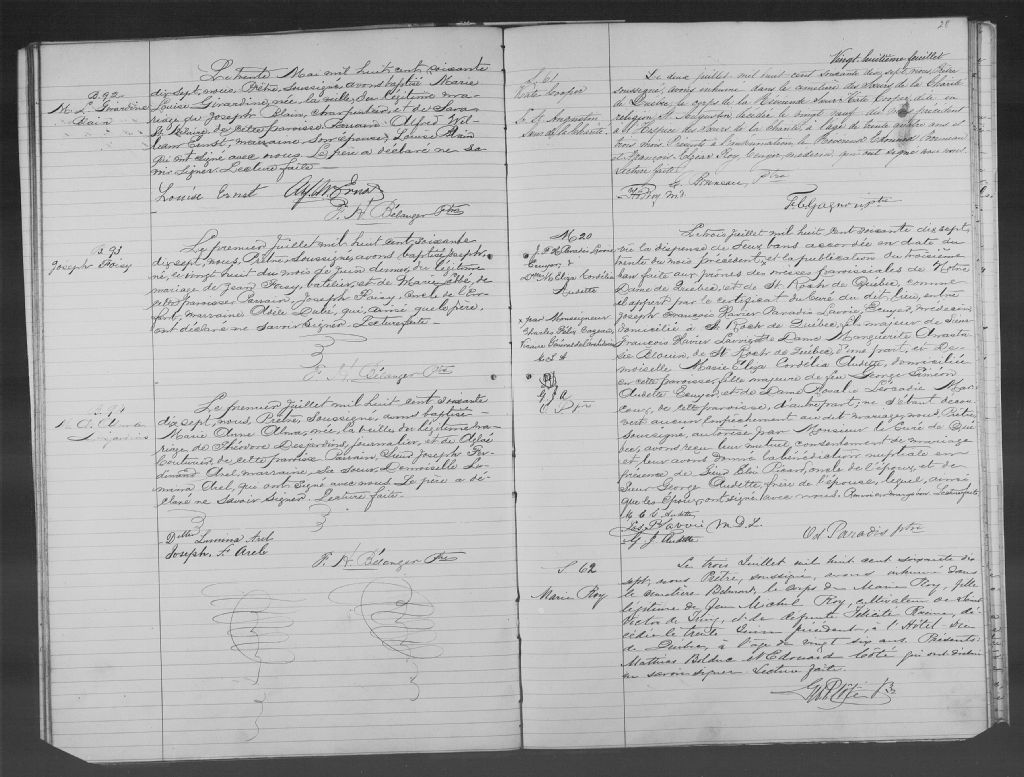 B. 92
M. L. Girardine
Blain
Le trente Mai mil huit cent soixante
dix sept, nous Prêtre, Soussigné, avons baptisé Marie
Louise Girardine, née la veille, du légitime ma-
riage de Joseph Blain, Charpentier, et de
St Blaine de cette paroisse Parrain Alfred Wil-
liam Ernst, marraine Son épouse, Louise Blain
qui ont signé avec nous. Le père a déclaré ne sa-
voir signer. Lecture faite
Louise Ernst Alf. W. Ernst
F. H. Bélanger Ptre
B. 93
Joseph Foisy
Le premier Juillet mil huit cent soixante
dix sept, nous, Prêtre, Soussigné avons baptisé Joseph,
né le vingt huit du mois de Juin dernier, du légitime
mariage de Jean Foisy, batelier, et de Marie Dubé, de
cette paroisse. Parrain, Joseph Foisy, Oncle de l'en-
fant, marraine Adèle Dubé, qui, ainsi que le père,
ont déclaré ne savoir signer. Lecture faite.
F. H. Bélanger Ptre
B. 94
M. A. Alma
Desjardins
Le premier Juillet mil huit cent soixante
dix sept, nous, Prêtre, Soussigné, avons baptisé
Marie Anne Alma, née la veille du légitime ma-
riage de Théodore Desjardins, journalier, et de Aglaé
Couturier de cette paroisse Parrain, Sieur Joseph Fer-
dinand Arel, marraine, sa Soeur Demoiselle Lu-
mina Arel, qui ont Signé avec nous. Le père a dé-
claré ne Savoir Signer. Lecture faite.
Delle Lumina Arel
Joseph. F. Arel
F. H. Bélanger Ptre
28
Vingt huitième feuillet
S. 61
Kate Cooper
S. St Augustin
Soeur de la Charité
Le deux juillet, mil huit cent soixante dix sept, nous, Prêtre
soussigné, avons inhumé dans le cimetière des Soeurs de la Charité
de Québec, le corps de la Révérende Soeur Kate Cooper, dite en
religion St Augustin, décédée le vingt neuf du mois précédent
à l'Hospice des Soeurs de la Charité, à l'âge de trente quatre ans et
trois mois. Présents à l'inhumation, le Révérend Bonneau
et François Elzéar Roy, Ecuyer, médecin, qui ont signé avec nous.
Lecture faite.
E. Bonneau, Ptre
F. E. Roy M.D.
F. E. Gagnon Ptre
M. 20
J. F. X. Paradis Lavoie
Ecuyer, &
Dlle M. Eliza Cordélia
Audette
x par Monseigneur
Charles Félix Cazeau,
Vicaire Général de l'archidiocèse
G. J. A
O. Ptre
Le trois Juillet mil huit cent soixante dix sept,
vu la dispense de deux bans accordée en date du
trente du mois précédent, x et la publication du troisième
ban faite aux prônes des messes paroissiales de Notre
Dame de Québec, et de St Roch de Québec, comme
il appert par le certificat du Curé du dit lieu, entre
Joseph François Xavier Paradis Lavoie, Ecuyer, médecin
domicilié à St Roch de Québec, fils majeur de Sieur
François Xavier Lavoie et de Dame Marguerite Anasta-
sie Blouin, de St Roch de Québec, d'une part, et De-
moiselle Marie Eliza Cordélia Audette, domiciliée
en cette paroisse, fille majeure de feu George Siméon
Audette Ecuyer, et de Dame Rosalie Léocadie Mar-
coux, de cette paroisse, d'autre part, ne s'étant décou-
vert aucun empêchement au dit mariage, nous, Prêtre,
Soussigné, autorisé par Monsieur le Curé de Qué-
bec, avons reçu leur mutuel consentement de mariage
et leur avons donné la bénédiction nuptiale en
présence de Sieur Eloi Picard, oncle de l'époux, et de
Sieur George Audette, frère de l'épouse, lequel, ainsi
que les époux, ont signé avec nous. Lecture faite
M. E. C. Audette
Jos. F. Lavoie M.D.L.
G. J. Audette
Od. Paradis ptre
S. 62
Marie Roy
Le trois Juillet mil huit cent soixante dix
sept, nous Prêtre, soussigné, avons inhumé dans
le cimetière Belmont, le corps de Marie Roy, fille
légitime de Jean Michel Roy, cultivateur de Saint
Victor de Tring, et de défunte Félicité Racine, dé-
cédée le trente Juin précédent, à l'Hôtel-Dieu
de Québec, à l'âge de vingt dix ans. Présents
Mathias Bolduc et Edouard Côté qui ont déclaré
ne savoir signer. Lecture faite.